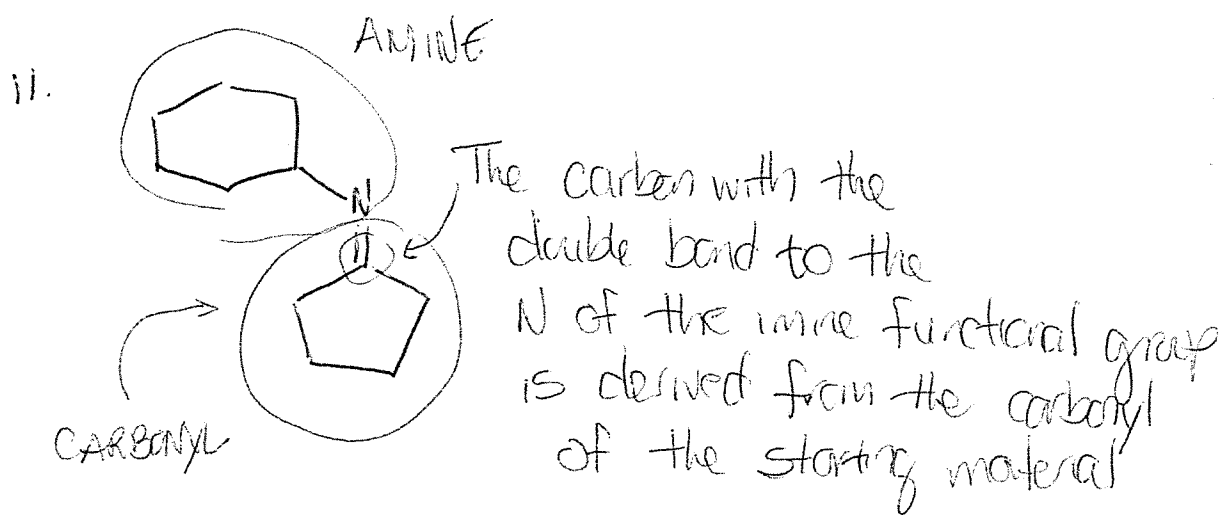 AMINE
ii.
N
The carbon with the
double bond to the
N of the imine functional group
is derived from the carbonyl
of the starting material
CARBONYL